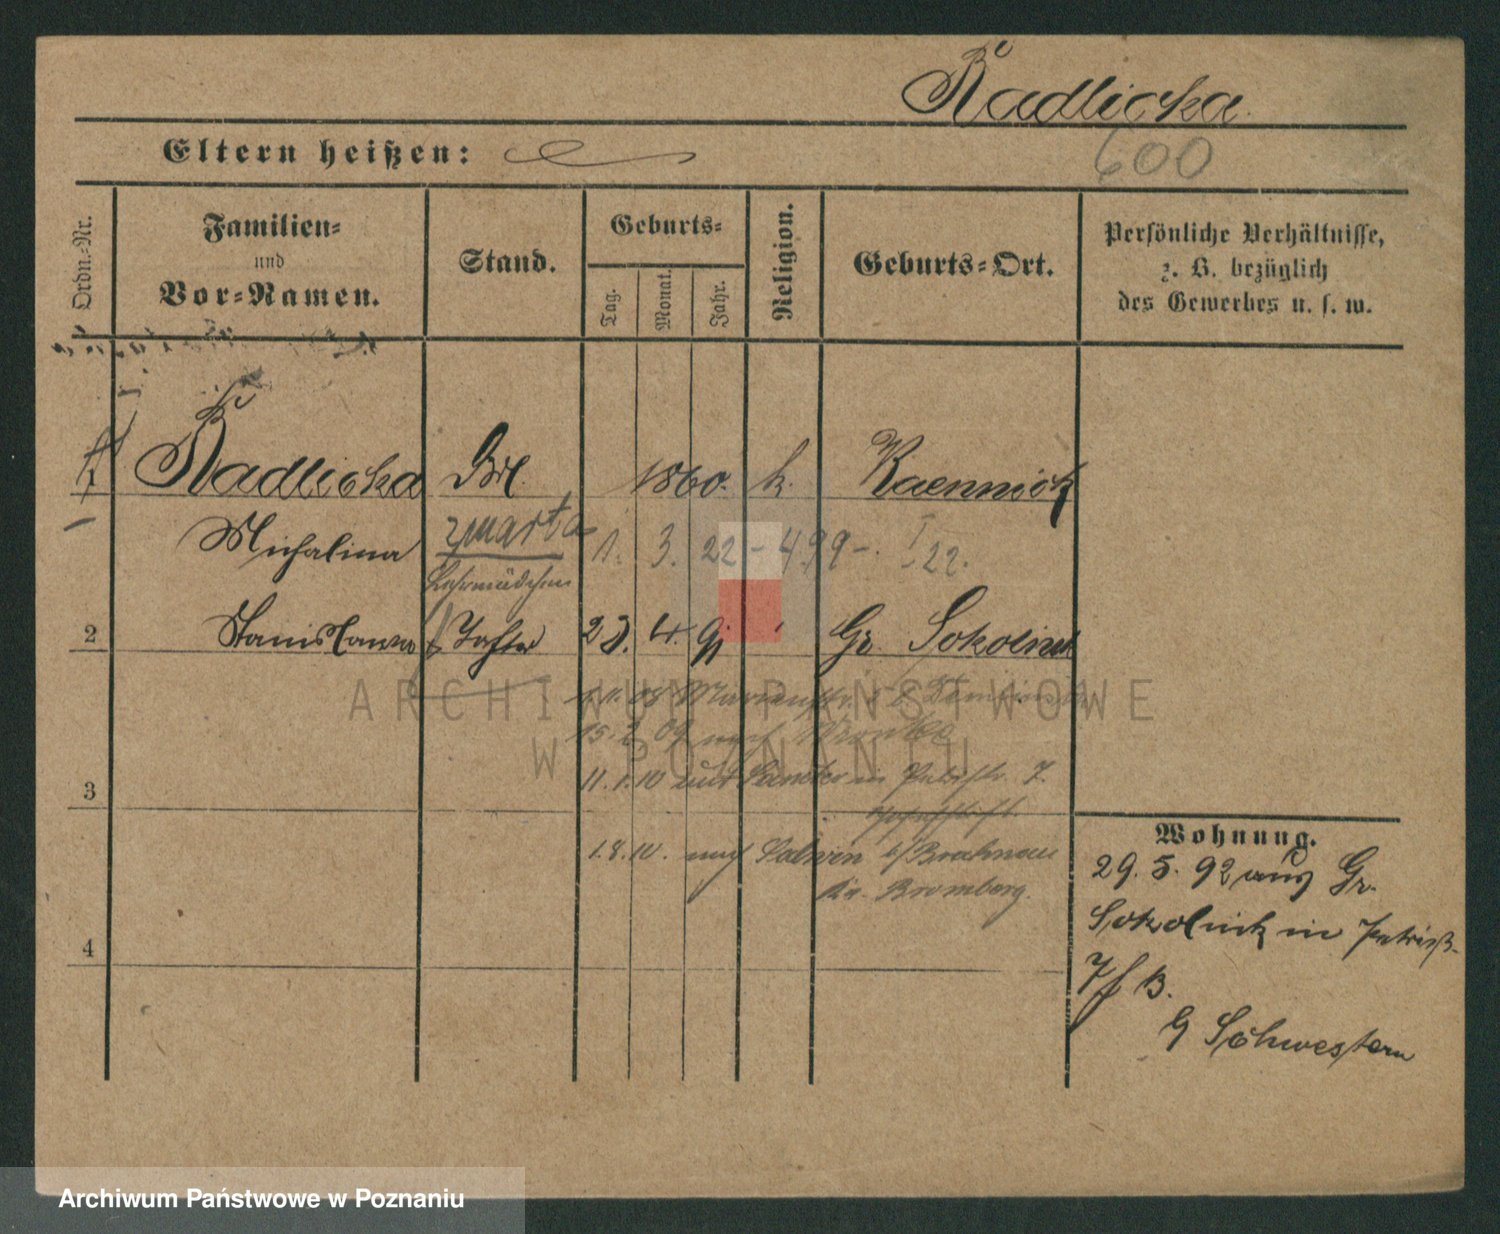 Radlicka.
Eltern heißen:
600
Ordn.-Nr.
Familien-
und
Vor-Namen.
Stand.
Geburts-
Tag.
Monat.
Jahr.
Religion.
Geburts-Ort.
Persönliche Verhältnisse,
z. B. bezüglich
des Gewerbes u. s. w.
1 Radlicka 1860. k.
Michalina zmarła 1. 3. 22 - 499 -. I 22.
Lehrmädchen
2 Stanislawa Tochter 23. 4. 91 Gr Sokolnik
15. 2. 09 nach Wronke
3 11. 1. 10 in Petristr. 7.
1.8.10. nach b/Brahnau
Kr. Bromberg.
4
Wohnung.
29. 5. 92 aus Gr.
Sokolnik in Petristr.
7 B.
Schwestern
ARCHIWUM PAŃSTWOWE
W POZNANIU
Archiwum Państwowe w Poznaniu